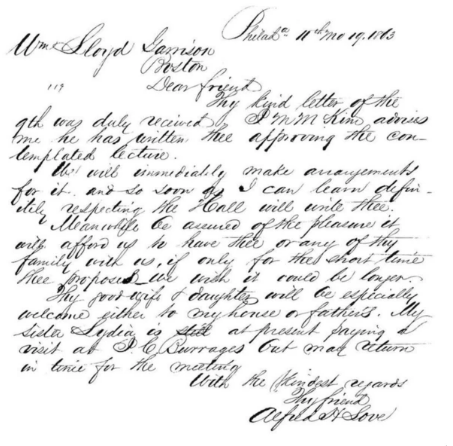 Philada 11th Mo 19. 1863
Wm Lloyd Garrison
Boston
Dear friend
Thy kind letter of the
9th was duly received J M M Kim advises
me he has written thee approving the con-
templated lecture.
We will immediately make arrangements
for it and so soon as I can learn defin-
itely respecting the Hall will write thee.
Meanwhile be assured of the pleasure it
will afford us to have thee or any of thy
family with us, if only for the short time
thee proposes we wish it could be longer.
Thy good wife & daughter will be especially
welcome either to my house or fathers. My
sister Lydia is still at present paying a
visit at J. C. Burrages but may return
in time for the meeting
With the kindest regards
Thy friend
Alfred H Love